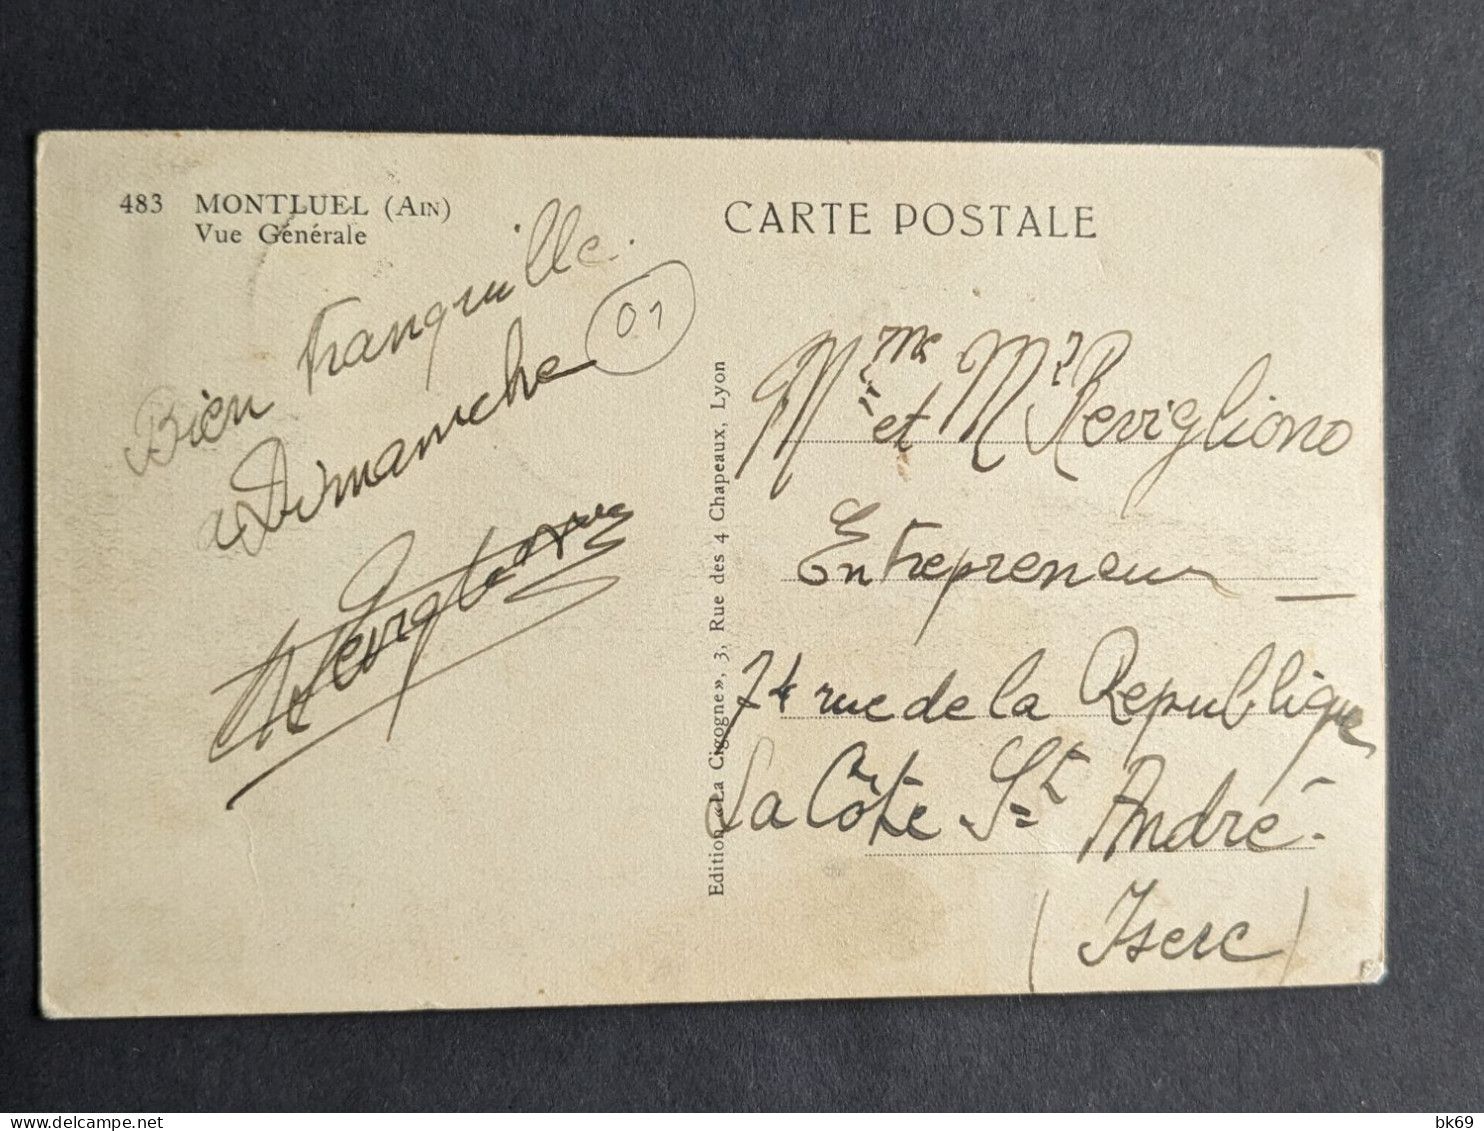 483 MONTLUEL (AIN)
Vue Générale
CARTE POSTALE
Bien tranquille.
à Dimanche
01
Revigliono
Edition «La Cigogne», 3, Rue des 4 Chapeaux, Lyon
Mme et Mr Revigliono
Entrepreneur
74 rue de la Republique
La Côte St André.
(Isere)
delcampe.net
bk69